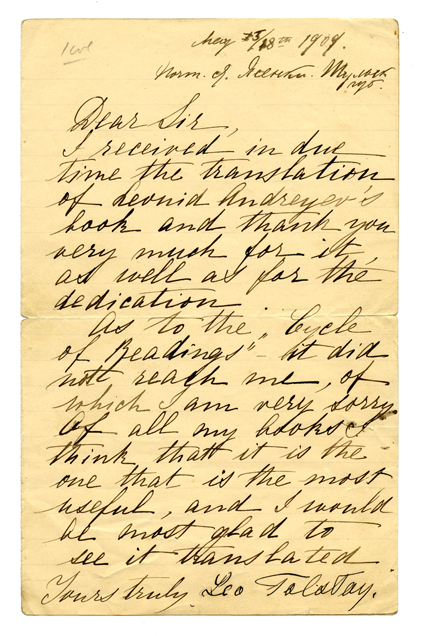 May 15/28th 1909.
Dear Sir,
I received in due
time the translation
of Leonid Andreyev's
book and thank you
very much for it,
as well as for the
dedication.
As to the „Cycle
of Readings" - it did
not reach me, of
which I am very sorry
Of all my books I
think that it is the
one that is the most
useful, and I would
be most glad to
see it translated
Yours truly Leo Tolstoy.